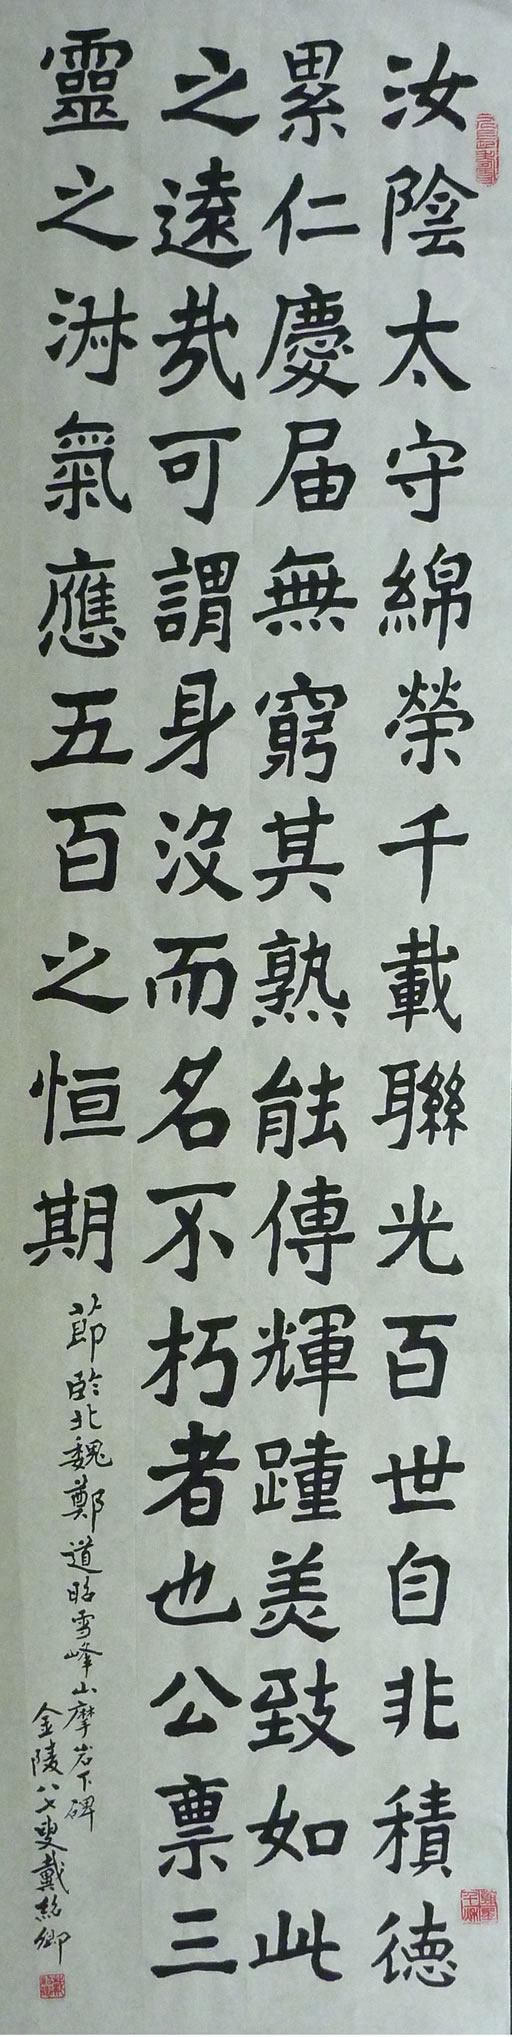 汝陰太守綿榮千載聯光百世自非積德
累仁慶届無窮其熟能傳輝踵美致如此
之遠㢤可謂身沒而名不朽者也公稟三
靈之淋氣應五百之恒期
節臨北魏鄭道昭雲峰山摩岩下碑
金陵八七叟戴紹卿